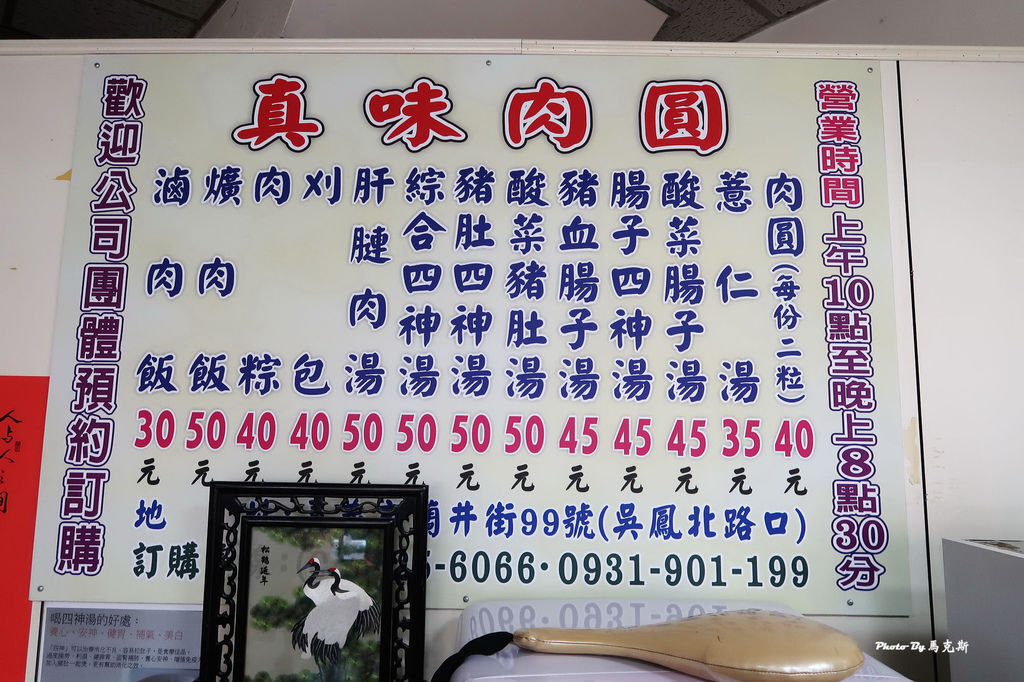 真味肉圓
營業時間 上午10點至晚上8點30分
肉圓(每份二粒) 40元
薏仁湯 35元
酸菜腸子湯 45元
腸子四神湯 45元
豬血腸子湯 45元
酸菜豬肚湯 50元
豬肚四神湯 50元
綜合四神湯 50元
肝腱肉湯 50元
刈包 40元
肉粽 40元
爌肉飯 50元
滷肉飯 30元
歡迎公司團體預約訂購
地 井街99號(吳鳳北路口)
訂購 -6066·0931-901-199
喝四神湯的好處：
養心、安神、健胃、補氣、美白
松鶴延年
Photo By 馬克斯